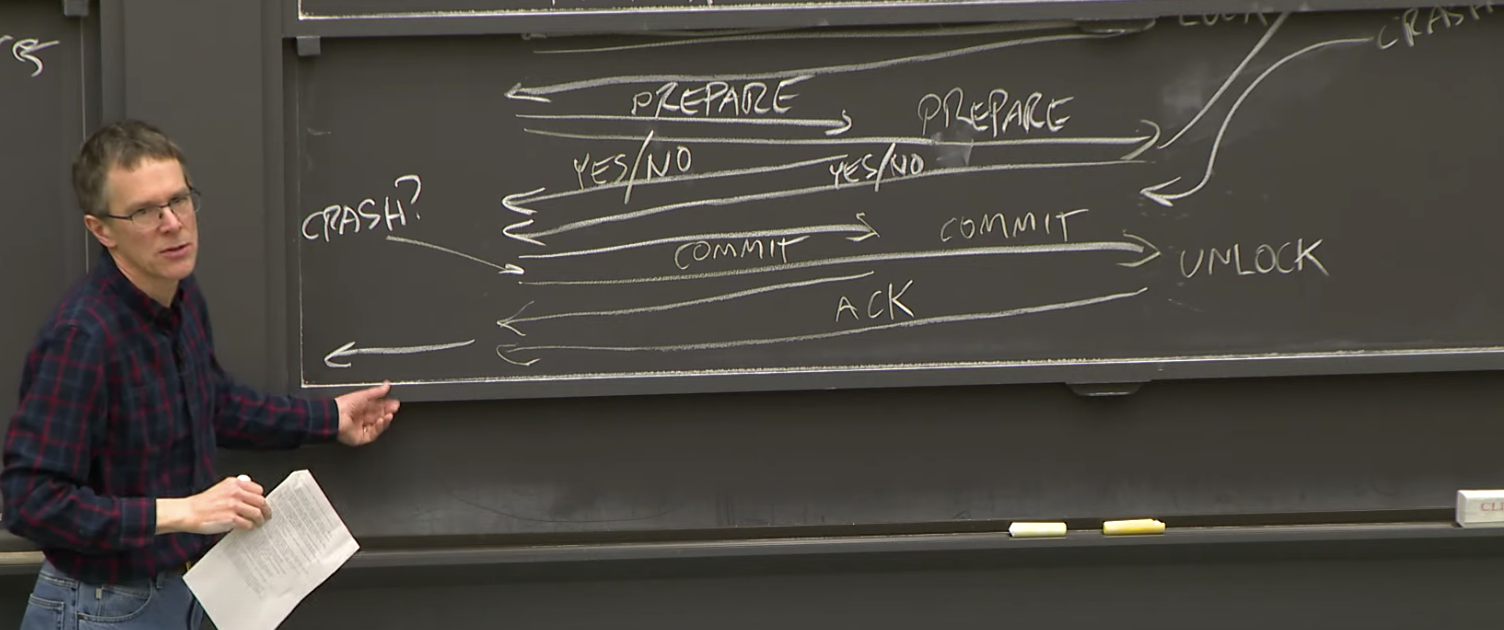 PREPARE PREPARE
YES/NO YES/NO
CRASH?
COMMIT COMMIT
UNLOCK
ACK
CRASH